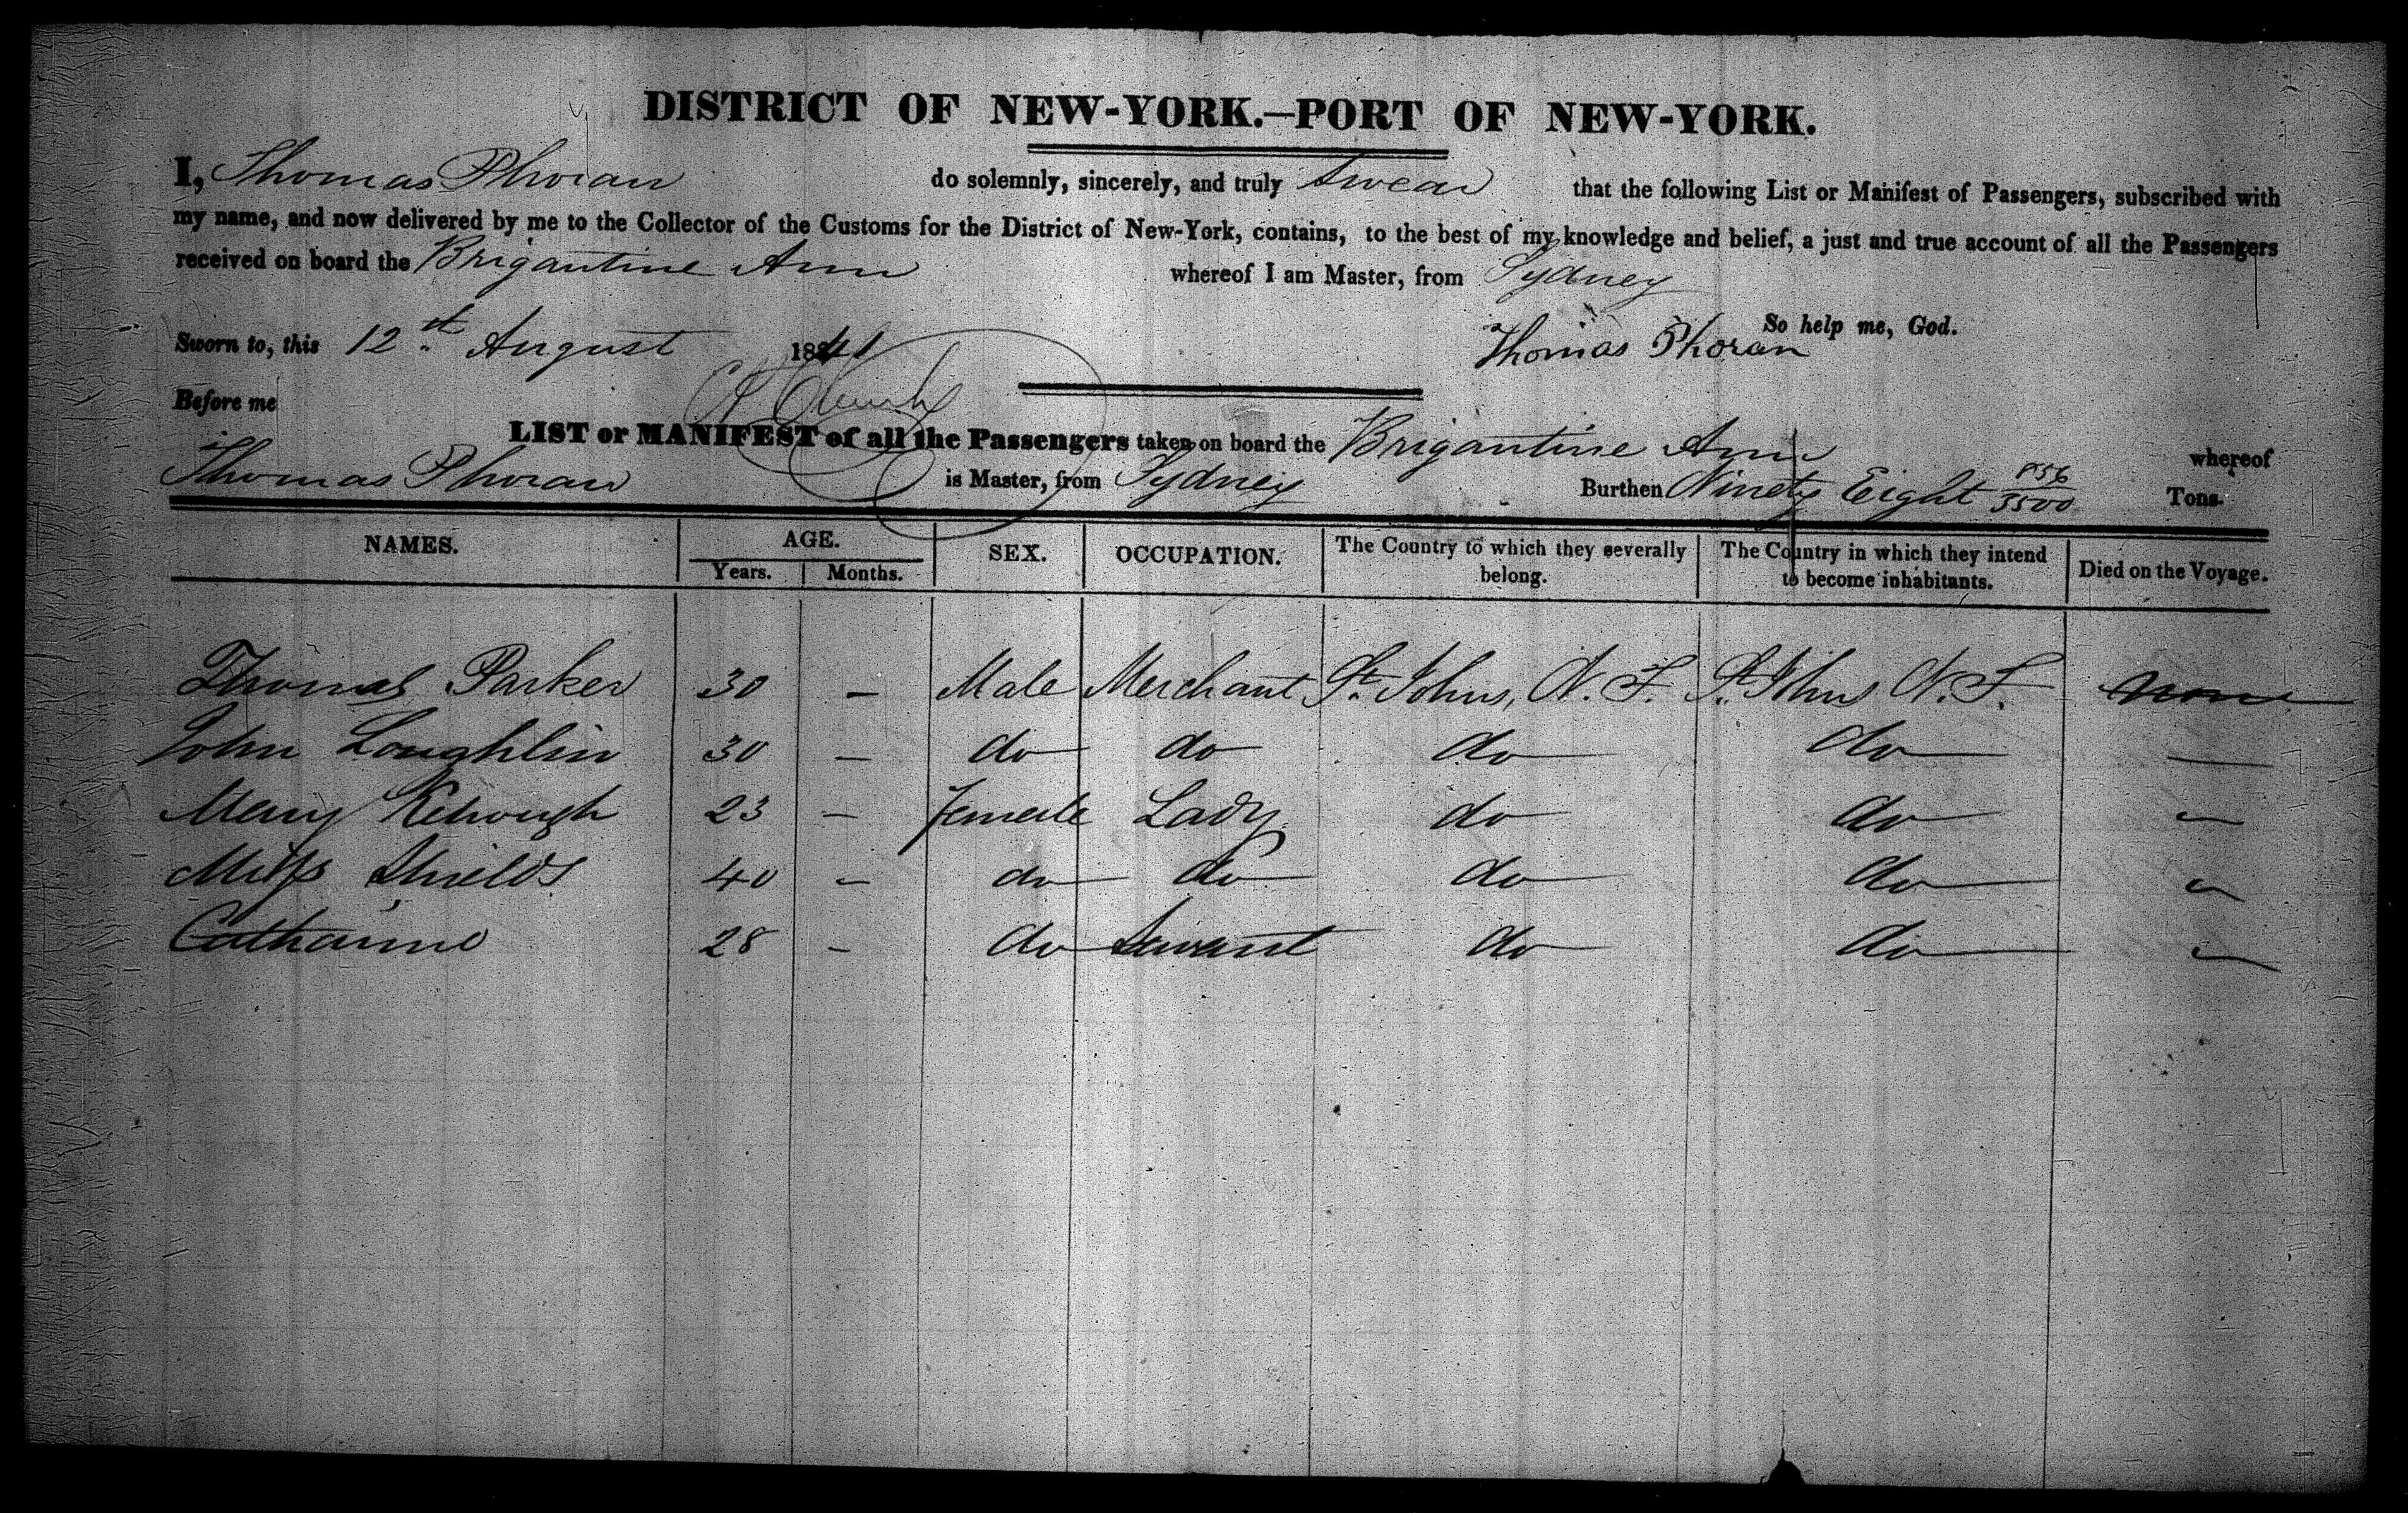 DISTRICT OF NEW-YORK.—PORT OF NEW-YORK.
I, Thomas Phoran do solemnly, sincerely, and truly Swear that the following List or Manifest of Passengers, subscribed with
my name, and now delivered by me to the Collector of the Customs for the District of New-York, contains, to the best of my knowledge and belief, a just and true account of all the Passengers
received on board the Brigantine Ann whereof I am Master, from Sydney
So help me, God.
Sworn to, this 12th August 1841 Thomas Phoran
Before me
LIST or MANIFEST of all the Passengers taken on board the Brigantine Ann whereof
Thomas Phoran is Master, from Sydney Burthen Ninety Eight 856/3500 Tons.
NAMES. AGE. SEX. OCCUPATION. The Country to which they severally belong. The Country in which they intend to become inhabitants. Died on the Voyage.
Years. Months.
Thomas Parker 30 — Male Merchant St. Johns, N. F. St. Johns N. F. None
John Loughlin 30 — do do do do —
Mary Kehough 23 — Female Lady do do —
Miss Shields 40 — do do do do —
Catharine 28 — do Servant do do —